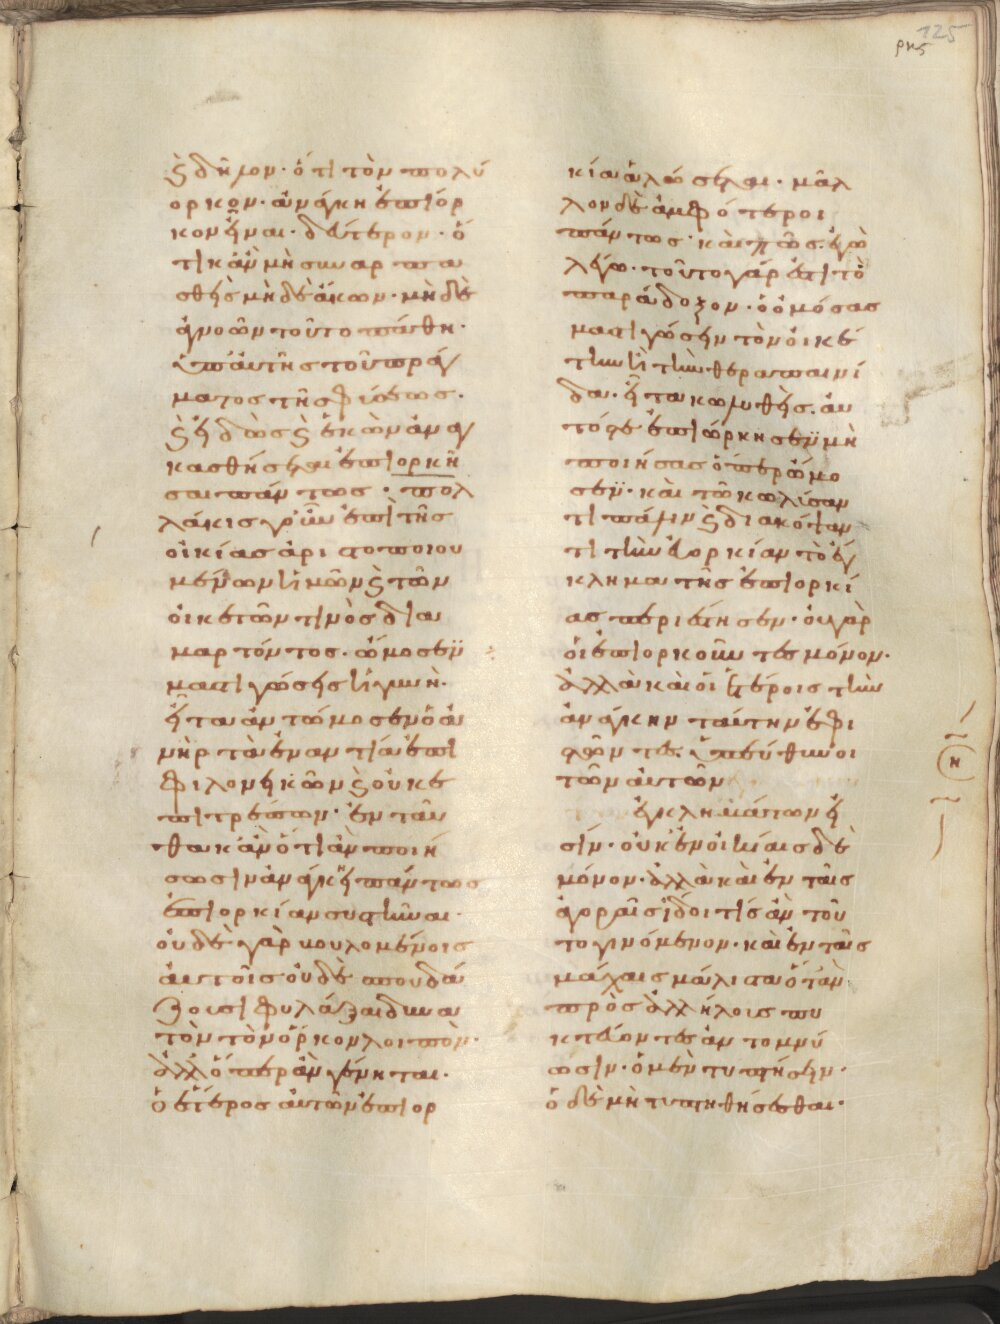 125
ρκς
ϗ δῆλον· ὅτι τὸν πολύ
ορκον· ἀνάγκη ἐπίορ
κον εἶναι· δεύτερον· ὅ
τι κἂν μὴ συναρπα
σθῆς μὴ δὲ ἄκων· μὴ δὲ
ἀγνοῶν τοῦτο πάθη·
ὑπ' αὐτῆς τοῦ πράγ
ματος τῆς φύσεως·
ϗ εἰδὼς ϗ ἑκὼν ἀναγ
κασθήσεται ἐπιορκῆ
σαι πάντως· πολ
λάκις γοῦν ἐπὶ τῆς
οἰκίας ἀριστοποιου
μένων ἡμῶν ϗ τῶν
οἰκετῶν τινὸς δια
μαρτόντος· ὤμοσεν
μαστιγώσειν ἡ γυνή·
εἶτα ἀντώμοσεν ὁ ἀ
νὴρ τὰ ἐναντία ἐπι
φιλονεικῶν ϗ οὐκ ἐ
πιτρέπων· ἐνταῦ
θα κἂν ὅτι ἂν ποιή
σωσιν ἀνάγκη πάντως
ἐπιορκίαν συστῆναι·
οὐδὲ γὰρ βουλομένοις
αὐτοῖς οὐδὲ σπουδά
ζουσι φυλάξαι δυνα
τὸν τὸν ὅρκον λοιπόν·
ἀλλ' ὅπερ ἂν γένηται·
ὁ ἕτερος αὐτῶν ἐπιορ
κία ἁλώσεται· μᾶλ
λον δὲ ἀμφότεροι
πάντως· καὶ πῶς· ἐγὼ
λέγω· τοῦτο γάρ ἐστι τὸ
παράδοξον· ὁ ὀμόσας
μαστιγώσειν τὸν οἰκέ
την ἢ τὴν θεραπαινί
δα· εἶτα κωλυθεὶς· αὐ
τός τε ἐπιώρκησεν μὴ
ποιήσας ὅπερ ὤμο
σεν· καὶ τῶ κωλύσαν
τι πάλιν ϗ διακόψαν
τι τὴν εὐορκίαν τὸ ἔγ
κλημα τῆς ἐπιορκί
ας περιέστησεν· οὐ γὰρ
οἱ ἐπιορκοῦντες μόνον·
ἀλλὰ καὶ οἱ ἑτέροις τὴν
ἀνάγκην ταύτην ἐφι
στῶντες· ὑπεύθυνοι
τῶν αὐτῶν
ἐγκλημάτων εἰ
σίν· οὐκ ἐν οἰκίαις δὲ
μόνον· ἀλλὰ καὶ ἐν ταῖς
ἀγοραῖς ἴδοι τίς ἂν τοῦ
το γινόμενον· καὶ ἐν ταῖς
μάχαις μάλιστα ὅταν
πρὸς ἀλλήλοις πυ
κτεύοντες ἀντομνύ
ωσιν· ὁ μὲν τυπτήσειν·
ὁ δὲ μὴ τυπτηθήσεσθαι·